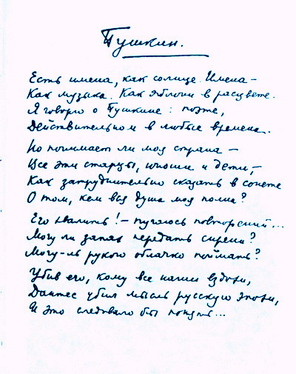 Пушкин.
Есть имена, как солнце! Имена –
Как музыка. Как яблоня в расцвете.
Я говорю о Пушкине: поэте,
Действительном в любые времена.
Но понимает ли моя страна –
Все эти старцы, юноши и дети, –
Как затруднительно сказать в сонете
О том, кем вся душа моя полна?
Его хвалить! – пугаюсь повторений...
Могу ли запах передать сирени?
Могу-ль рукою облачко поймать?
Убив его, кому все наши вздохи,
Дантес убил мысль русскую эпохи,
И это следовало бы понять...